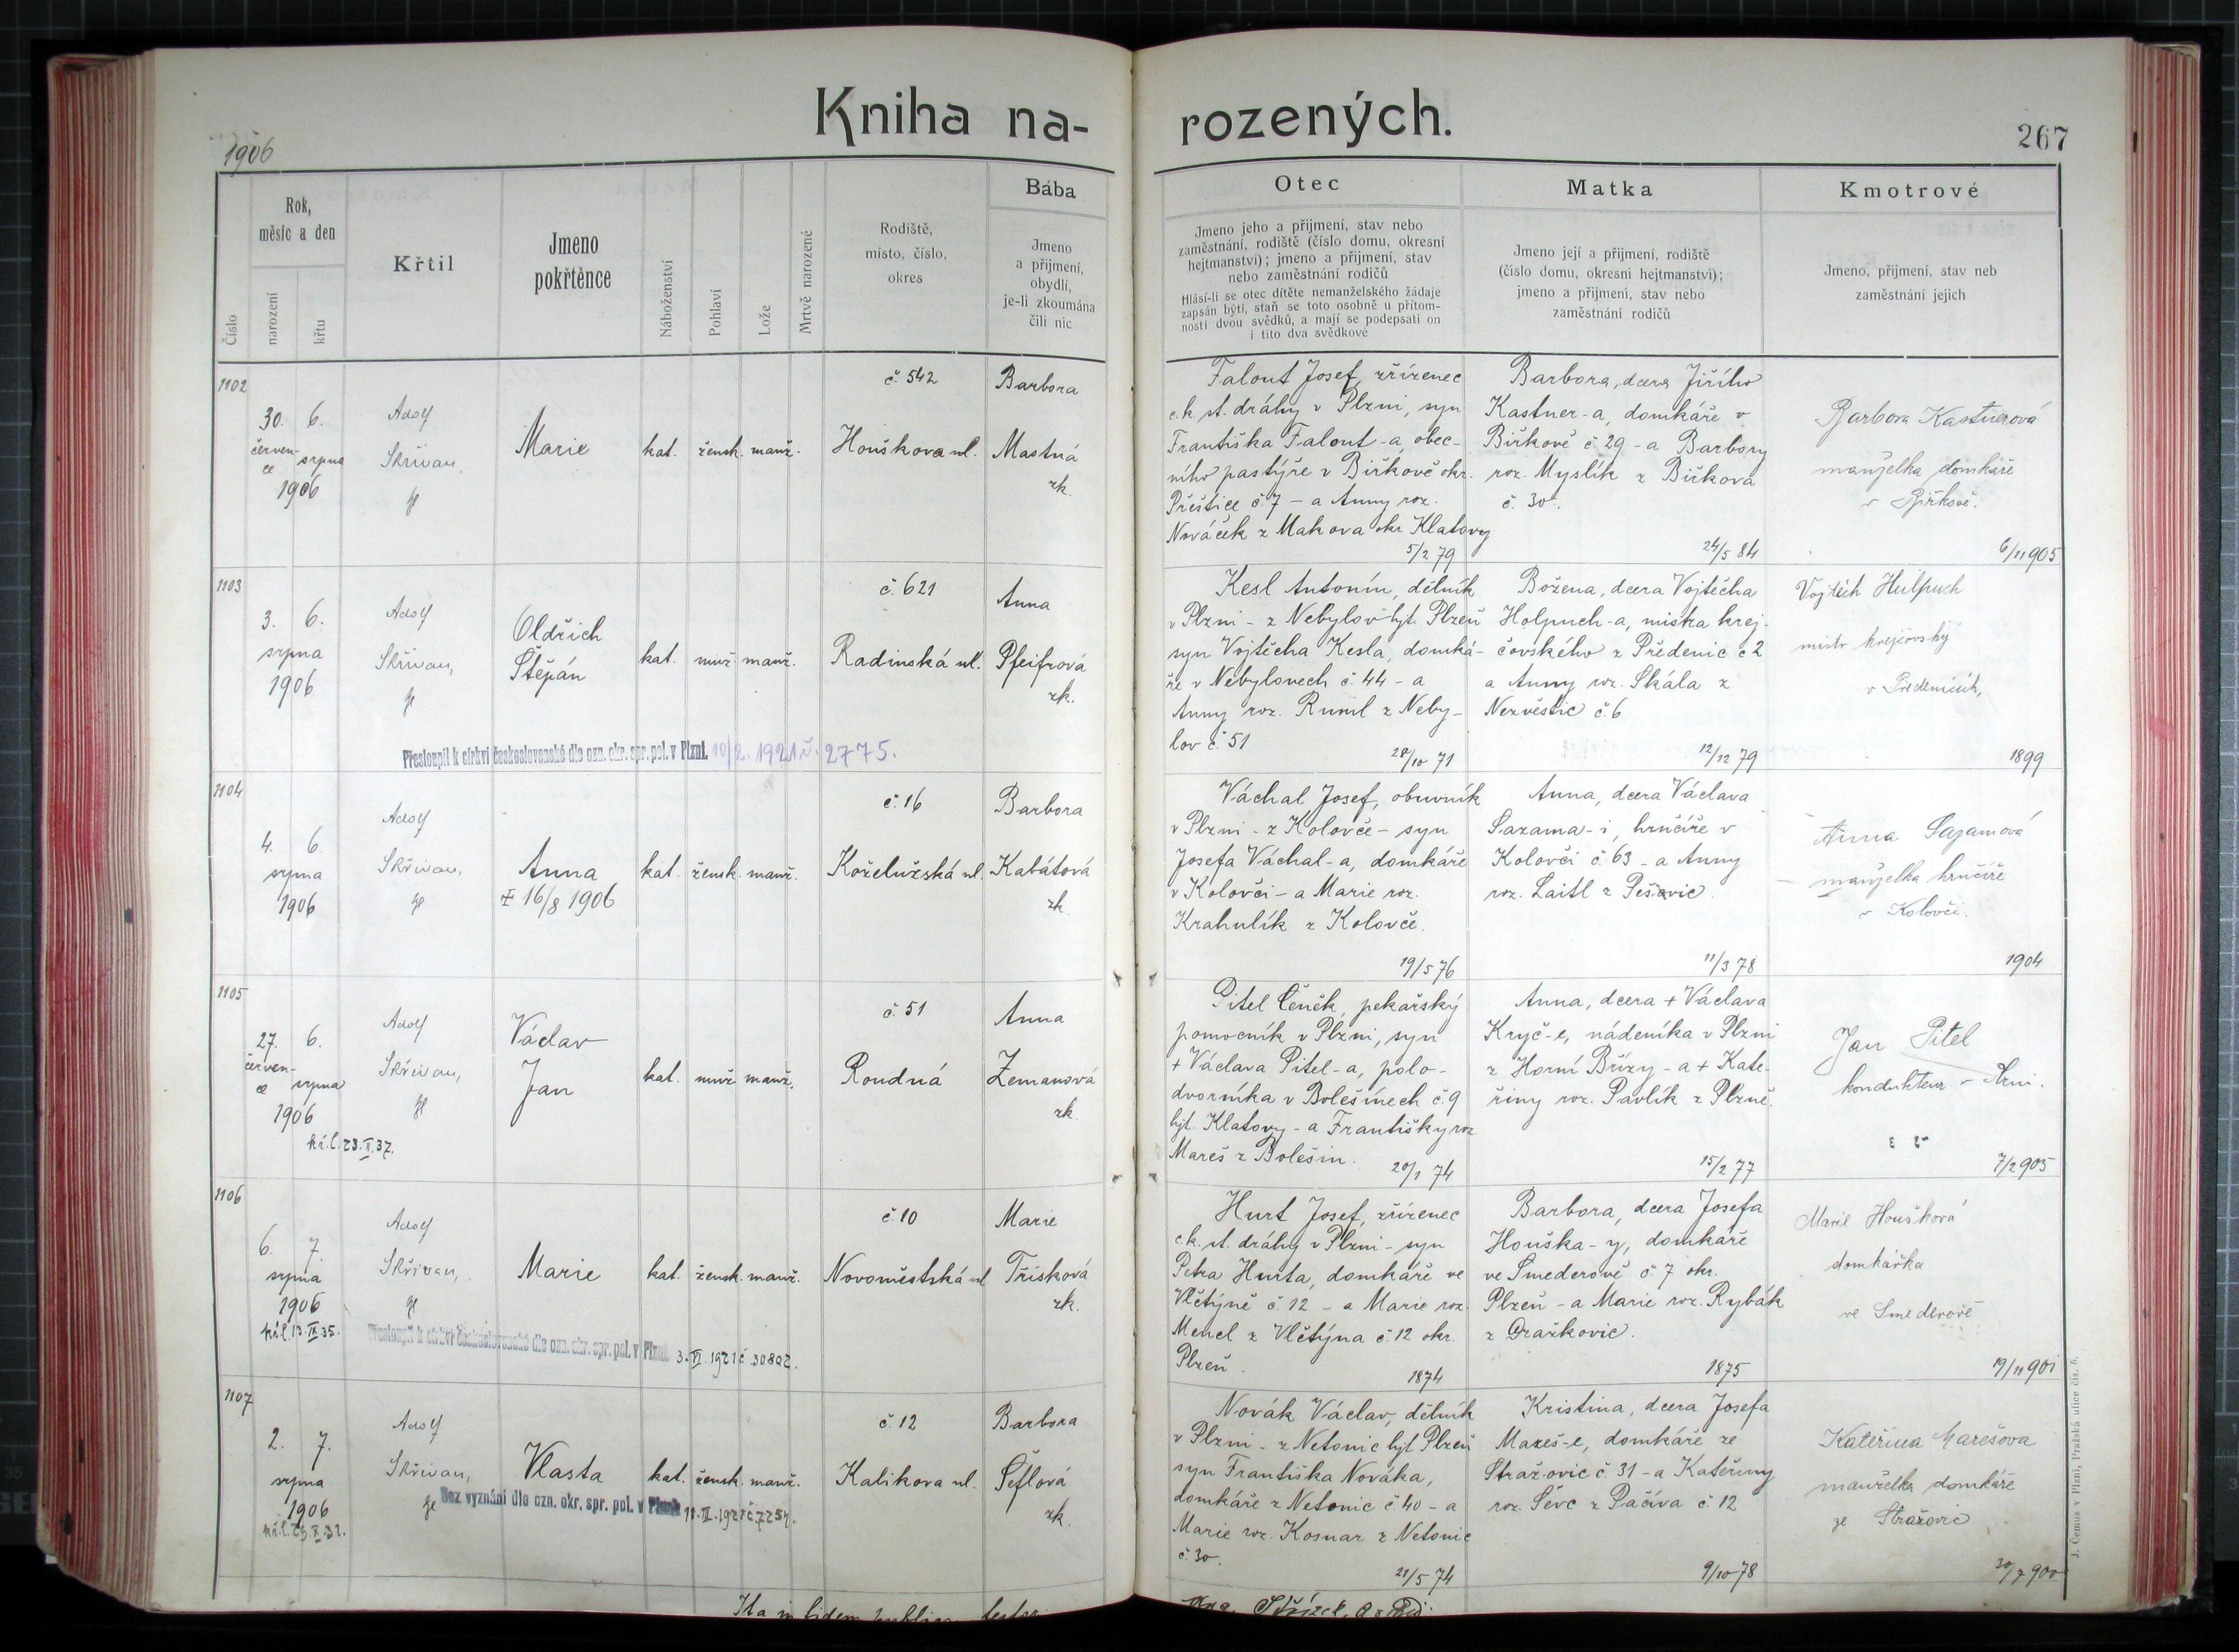 Kniha na-
rozených.
1906
267
Číslo
Rok,
měsíc a den
narození
křtu
Křtil
Jmeno
pokřtěnce
Náboženství
Pohlaví
Lože
Mrtvě narozené
Rodiště,
místo, číslo,
okres
Bába
Jmeno
a přijmení,
obydlí,
je-li zkoumána
čili nic
Otec
Jmeno jeho a přijmení, stav nebo
zaměstnání, rodiště (číslo domu, okresní
hejtmanství); jmeno a přijmení, stav
nebo zaměstnání rodičů
Hlásí-li se otec dítěte nemanželského žádaje
zapsán býti, staň se toto osobně u přítom-
nosti dvou svědků, a mají se podepsati on
i tito dva svědkové
Matka
Jmeno její a přijmení, rodiště
(číslo domu, okresní hejtmanství);
jmeno a přijmení, stav nebo
zaměstnání rodičů
Kmotrové
Jmeno, přijmení, stav neb
zaměstnání jejich
1102
30. 6.
červen-
ce srpna
1906
Adolf
Skřivan,
Marie
kat. žensk. manž.
č. 542
Houškova ul.
Barbora
Mastná
zk.
Falout Josef, zřízenec
c.k. st. dráhy v Plzni, syn
Františka Falout-a, obec-
ního pastýře v Biřkově okr.
Přeštice č. 7 - a Anny roz.
Nováček z Makova okr. Klatovy
5/2 79
Barbora, dcera Jiřího
Kastner-a, domkáře v
Biřkově č. 29 - a Barbory
roz. Myslík z Biřkova
č. 30.
24/5 84
Barbora Kastnerová
manželka domkáře
v Biřkově.
6/11 905
1103
3. 6.
srpna
1906
Adolf
Skřivan,
Oldřich
Štěpán
kat. muž. manž.
č. 621
Radinská ul.
Anna
Pfeifrová
zk.
Přestoupil k církvi československé dle ozn. okr. spr. pol. v Plzni. 10/2. 1921 č. 2775.
Kesl Antonín, dělník
v Plzni - z Nebylov hjt. Plzeň
syn Vojtěcha Kesla, domká-
ře v Nebylovech č. 44 - a
Anny roz. Ruml z Neby-
lov č. 51
28/10 71
Božena, dcera Vojtěcha
Holpuch-a, mistra krej-
čovského z Předenic č 2
a Anny roz. Skála z
Nezvěstic č. 6
12/12 79
Vojtěch Hulpuch
mistr krejčovský
v Předenicích,
1899
1104
4. 6.
srpna
1906
Adolf
Skřivan,
Anna
16/8 1906
kat. žensk. manž.
č. 16
Koželužská ul.
Barbora
Kabátová
zk.
Váchal Josef, obuvník
v Plzni - z Kolovče - syn
Josefa Váchal-a, domkáře
v Kolovči - a Marie roz.
Krahulík z Kolovče.
19/5 76
Anna, dcera Václava
Sazama-i, hrnčíře v
Kolovči č. 63 - a Anny
roz. Laitl z
11/3 78
Anna Sazamová
manželka hrnčíře
v Kolovči.
1904
1105
27. 6.
červen-
ce srpna
1906
Adolf
Skřivan,
Václav
Jan
kat. muž. manž.
č. 51
Roudná
Anna
Zemanová
zk.
Pitel Čeněk, pekařský
pomocník v Plzni, syn
+ Václava Pitel-a, polo-
dvorníka v Bolešinech č. 9
hjt. Klatovy - a Františky roz.
Mareš z Bolešin.
20/1 74
Anna, dcera + Václava
Kryč-e, nádeníka v Plzni
z Horní Břízy - a + Kate-
řiny roz. Pavlík z Plzně.
15/2 77
Jan Pitel
kondukteur v Plzni.
7/2 905
1106
6. 7.
srpna
1906
Adolf
Skřivan,
Marie
kat. žensk. manž.
č. 10
Novoměstská ul
Marie
Třísková
zk.
Přestoupil k církvi československé dle ozn. okr. spr. pol. v Plzni. 3. VI. 1921 č. 30802.
Hurt Josef, zřízenec
c.k. st. dráhy v Plzni - syn
Petra Hurta, domkáře ve
Vlčtýně č. 12 - a Marie roz.
Mencl z Vlčtýna č. 12 okr.
Plzeň.
1874
Barbora, dcera Josefa
Houška-y, domkáře
ve Smederově č. 7 okr.
Plzeň - a Marie roz. Rybák
z Dražkovic.
1875
Marie Houšková
domkářka
ve Smederově
19/11 901
1107
2. 7.
srpna
1906
Adolf
Skřivan,
Vlasta
kat. žensk. manž.
č. 12
Kalikova ul.
Barbora
Šeflová
zk.
Bez vyznání dle ozn. okr. spr. pol. v Plzni
Novák Václav, dělník
v Plzni - z Netonic hjt. Plzeň
syn Františka Nováka,
domkáře z Netonic č 40 - a
Marie roz. Kosnar z Netonic
č. 30.
21/5 74
Kristina, dcera Josefa
Mareš-e, domkáře ze
Stražovic č. 31 - a Kateřiny
roz. Ševc z Pačíva č. 12
9/10 78
Kateřina Marešova
manželka domkáře
ze Stražovic
30/7 900
J. Čemus v Plzni, Pražská ulice čís. 5.